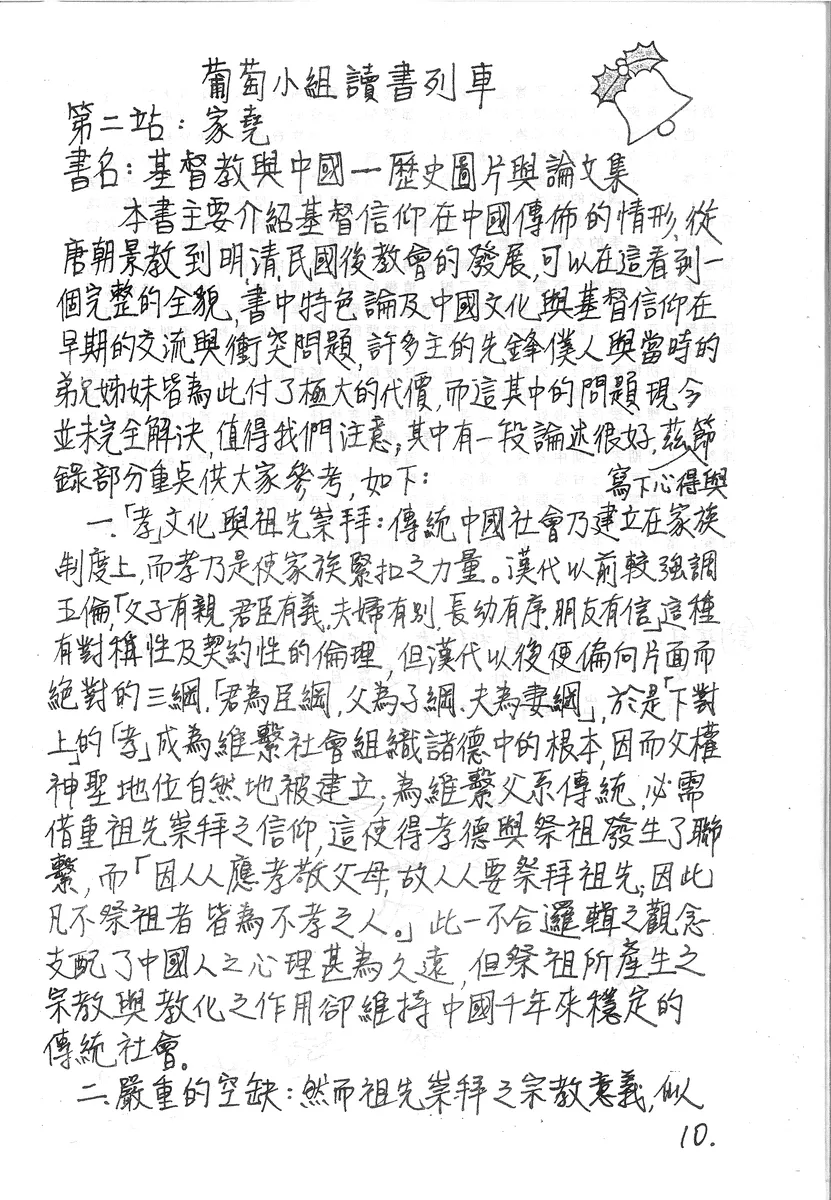 葡萄小組讀書列車
第二站：家堯
書名：基督教與中國－歷史圖片與論文集
本書主要介紹基督信仰在中國傳佈的情形，從
唐朝景教到明，清，民國後教會的發展，可以在這看到一
個完整的全貌，書中特色論及中國文化與基督信仰在
早期的交流與衝突問題，許多主的先鋒僕人與當時的
弟兄姊妹皆為此付了極大的代價，而這其中的問題現今
並未完全解決，值得我們注意；其中有一段論述很好，茲節
錄部分重点供大家參考，如下：
寫下心得與
一、「孝」文化與祖先崇拜：傳統中國社會乃建立在家族
制度上，而孝乃是使家族緊扣之力量。漢代以前較強調
五倫，「父子有親，君臣有義，夫婦有別，長幼有序，朋友有信」這種
有對稱性及契約性的倫理，但漢代以後便偏向片面而
絕對的三綱，「君為臣綱，父為子綱，夫為妻綱」，於是「下對
上」的「孝」成為維繫社會組織諸德中的根本，因而父權
神聖地位自然地被建立；為維繫父系傳統，必需
借重祖先崇拜之信仰，這使得孝德與祭祖發生了聯
繫，而「因人人應孝敬父母，故人人要祭拜祖先；因此
凡不祭祖者皆為不孝之人。」此一不合邏輯之觀念
支配了中國人之心理甚為久遠，但祭祖所產生之
宗教與教化之作用卻維持中國千年來穩定的
傳統社會。
二、嚴重的空缺：然而祖先崇拜之宗教意義，似
10.